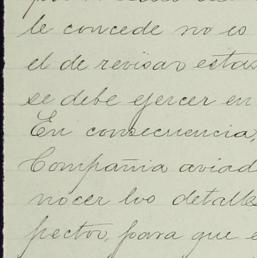 le concede no es
el de revisar estas
se debe ejercer en
En consecuencia,
Compañia aviad
nocer los detalle
pector, para que e